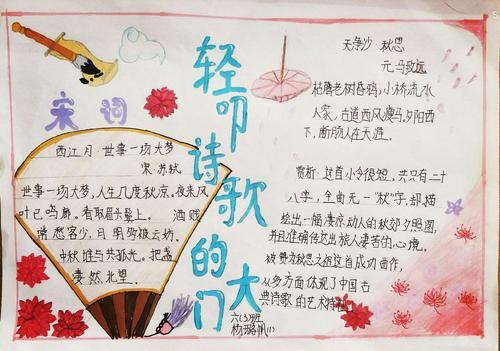 轻叩诗歌的大门
宋词
西江月·世事一场大梦
宋·苏轼
世事一场大梦,人生几度秋凉。夜来风
叶已鸣廊。看取眉头鬓上。 酒贱
常愁客少,月明多被云妨。
中秋谁与共孤光。把盏
凄然北望。
天净沙·秋思
元·马致远
枯藤老树昏鸦,小桥流水
人家,古道西风瘦马。夕阳西
下,断肠人在天涯。
赏析:这首小令很短,共只有二十
八字,全曲无一“秋”字,却描
绘出一幅凄凉动人的秋郊夕照图,
并且准确传达出旅人凄苦的心境。
被赞为秋思之祖这首成功曲作,
从多方面体现了中国古
典诗歌的艺术特征。
六(3)班